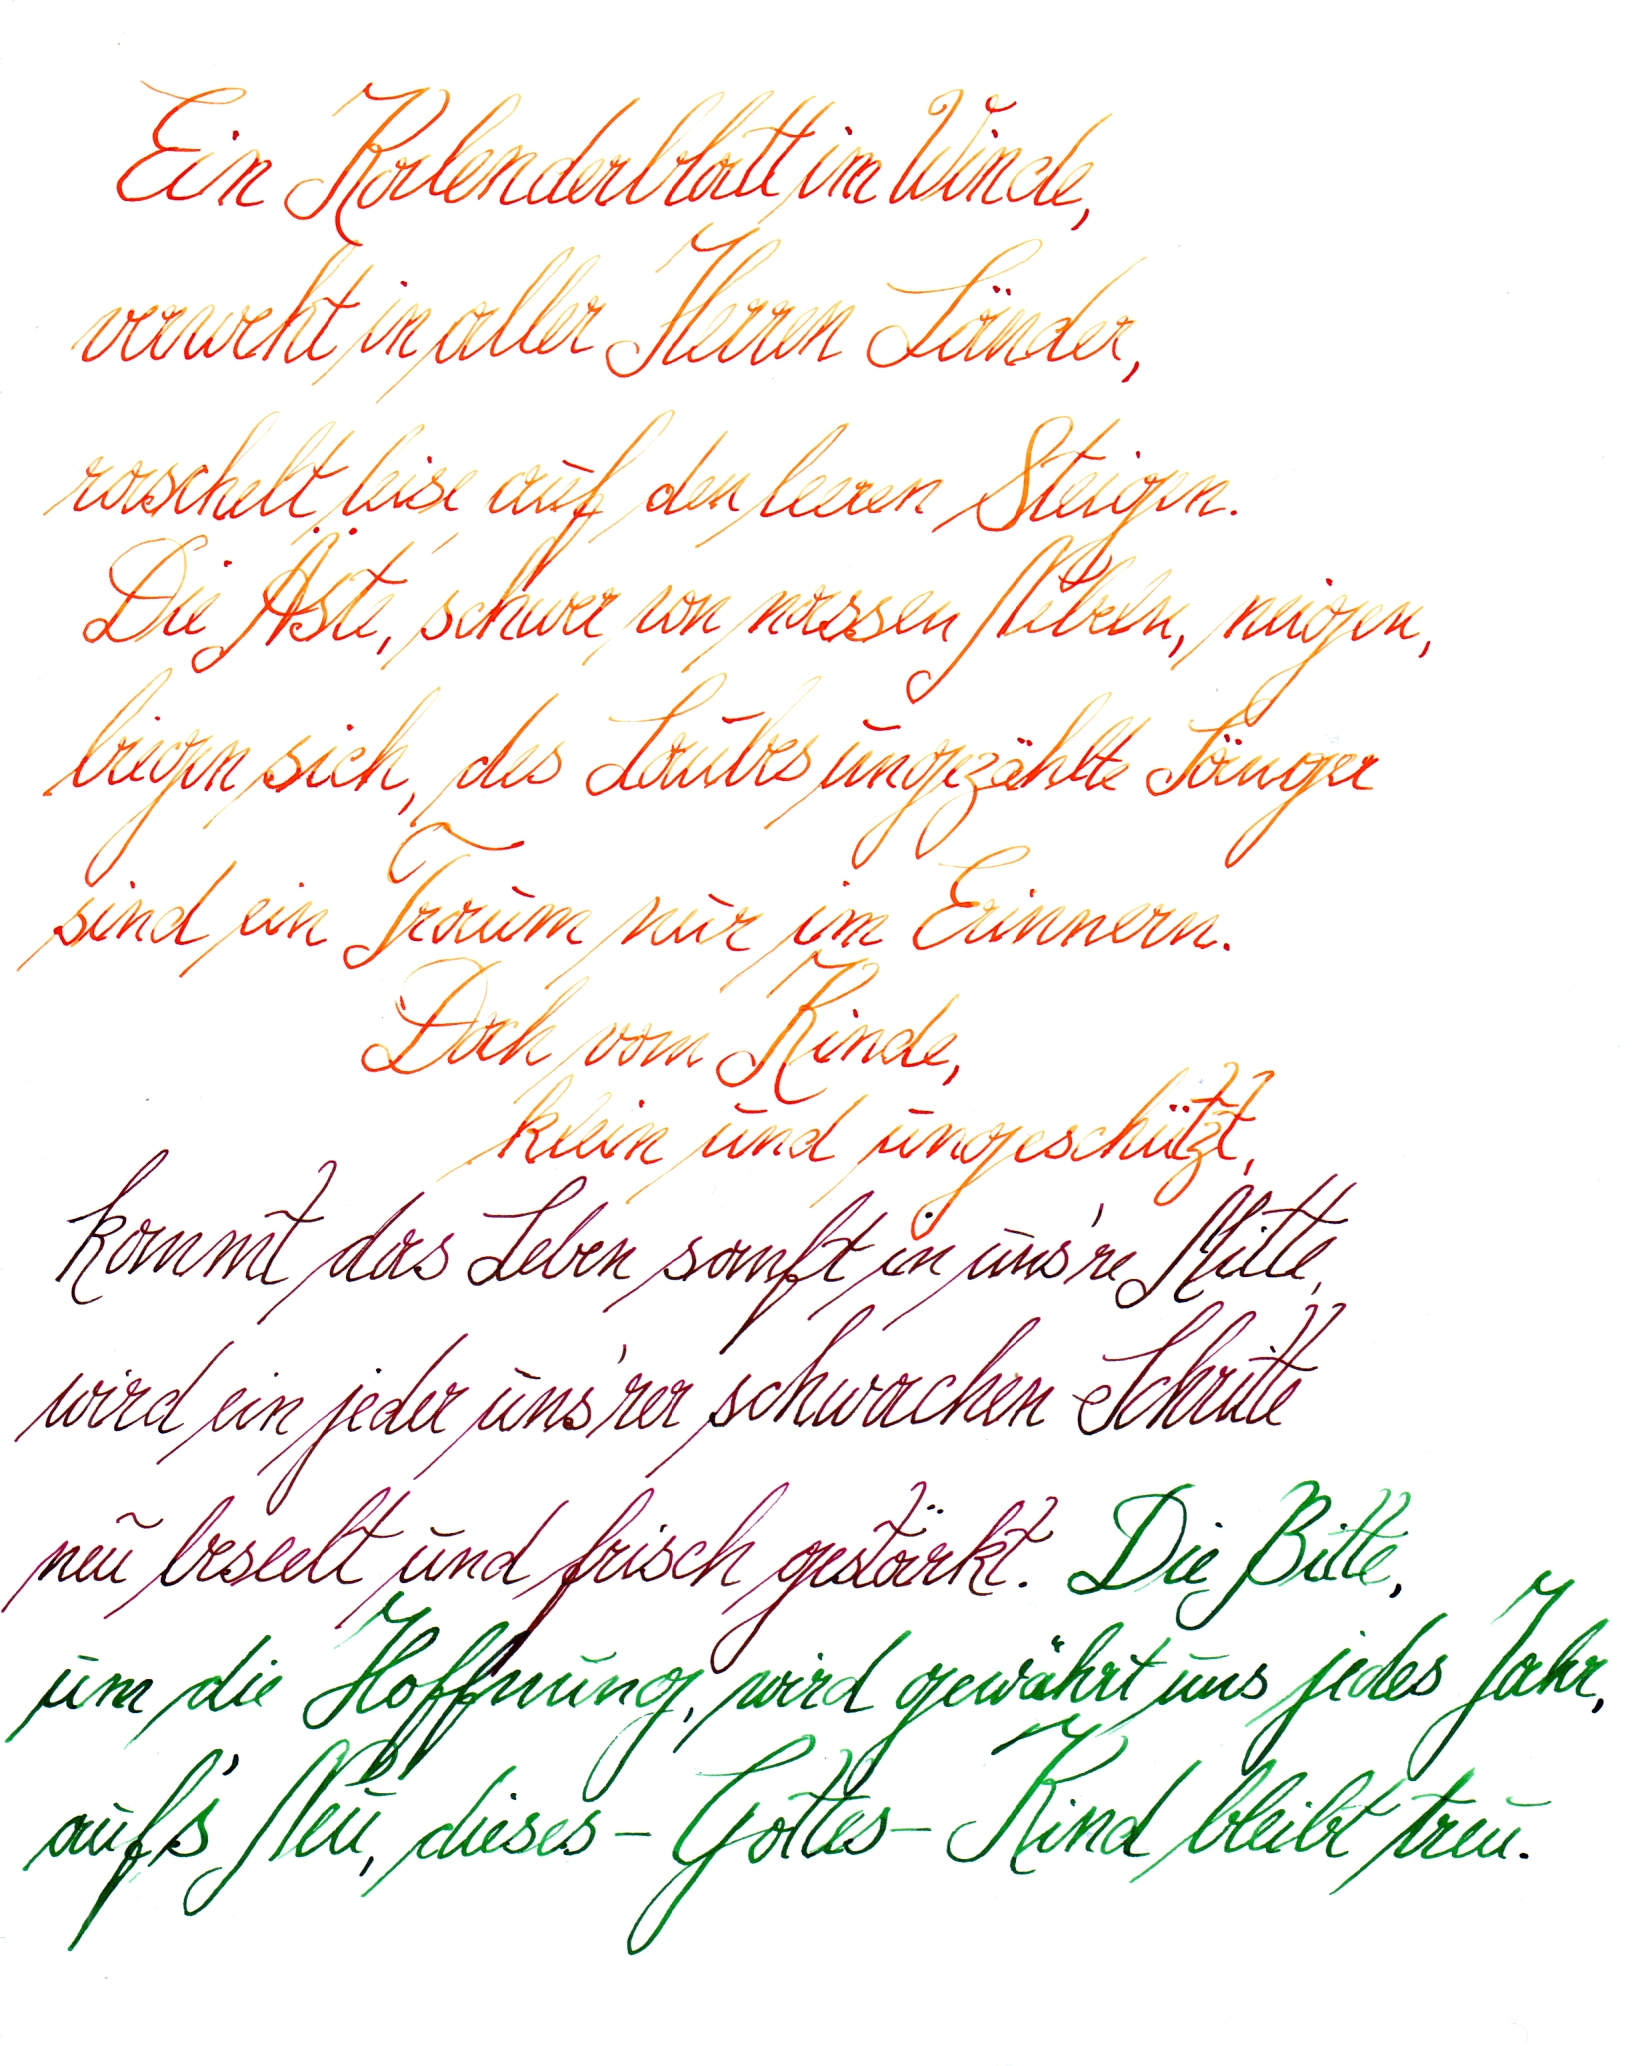 Ein Kalenderblatt im Winde,
verweht in aller Herren Länder,
raschelt leise auf den leeren Steigen.
Die Äste, schwer von nassen Nebeln, neigen,
biegen sich, des Laubes ungezählte Sänger
sind ein Traum nur im Erinnern.
Doch vom Kinde,
klein und ungeschützt,
kommt das Leben sanft in uns're Mitte,
wird ein jeder uns'rer schwachen Schritte
neu beseelt und frisch gestärkt. Die Bitte,
um die Hoffnung, wird gewährt uns jedes Jahr,
auf's Neu, dieses - Gottes - Kind bleibt treu.